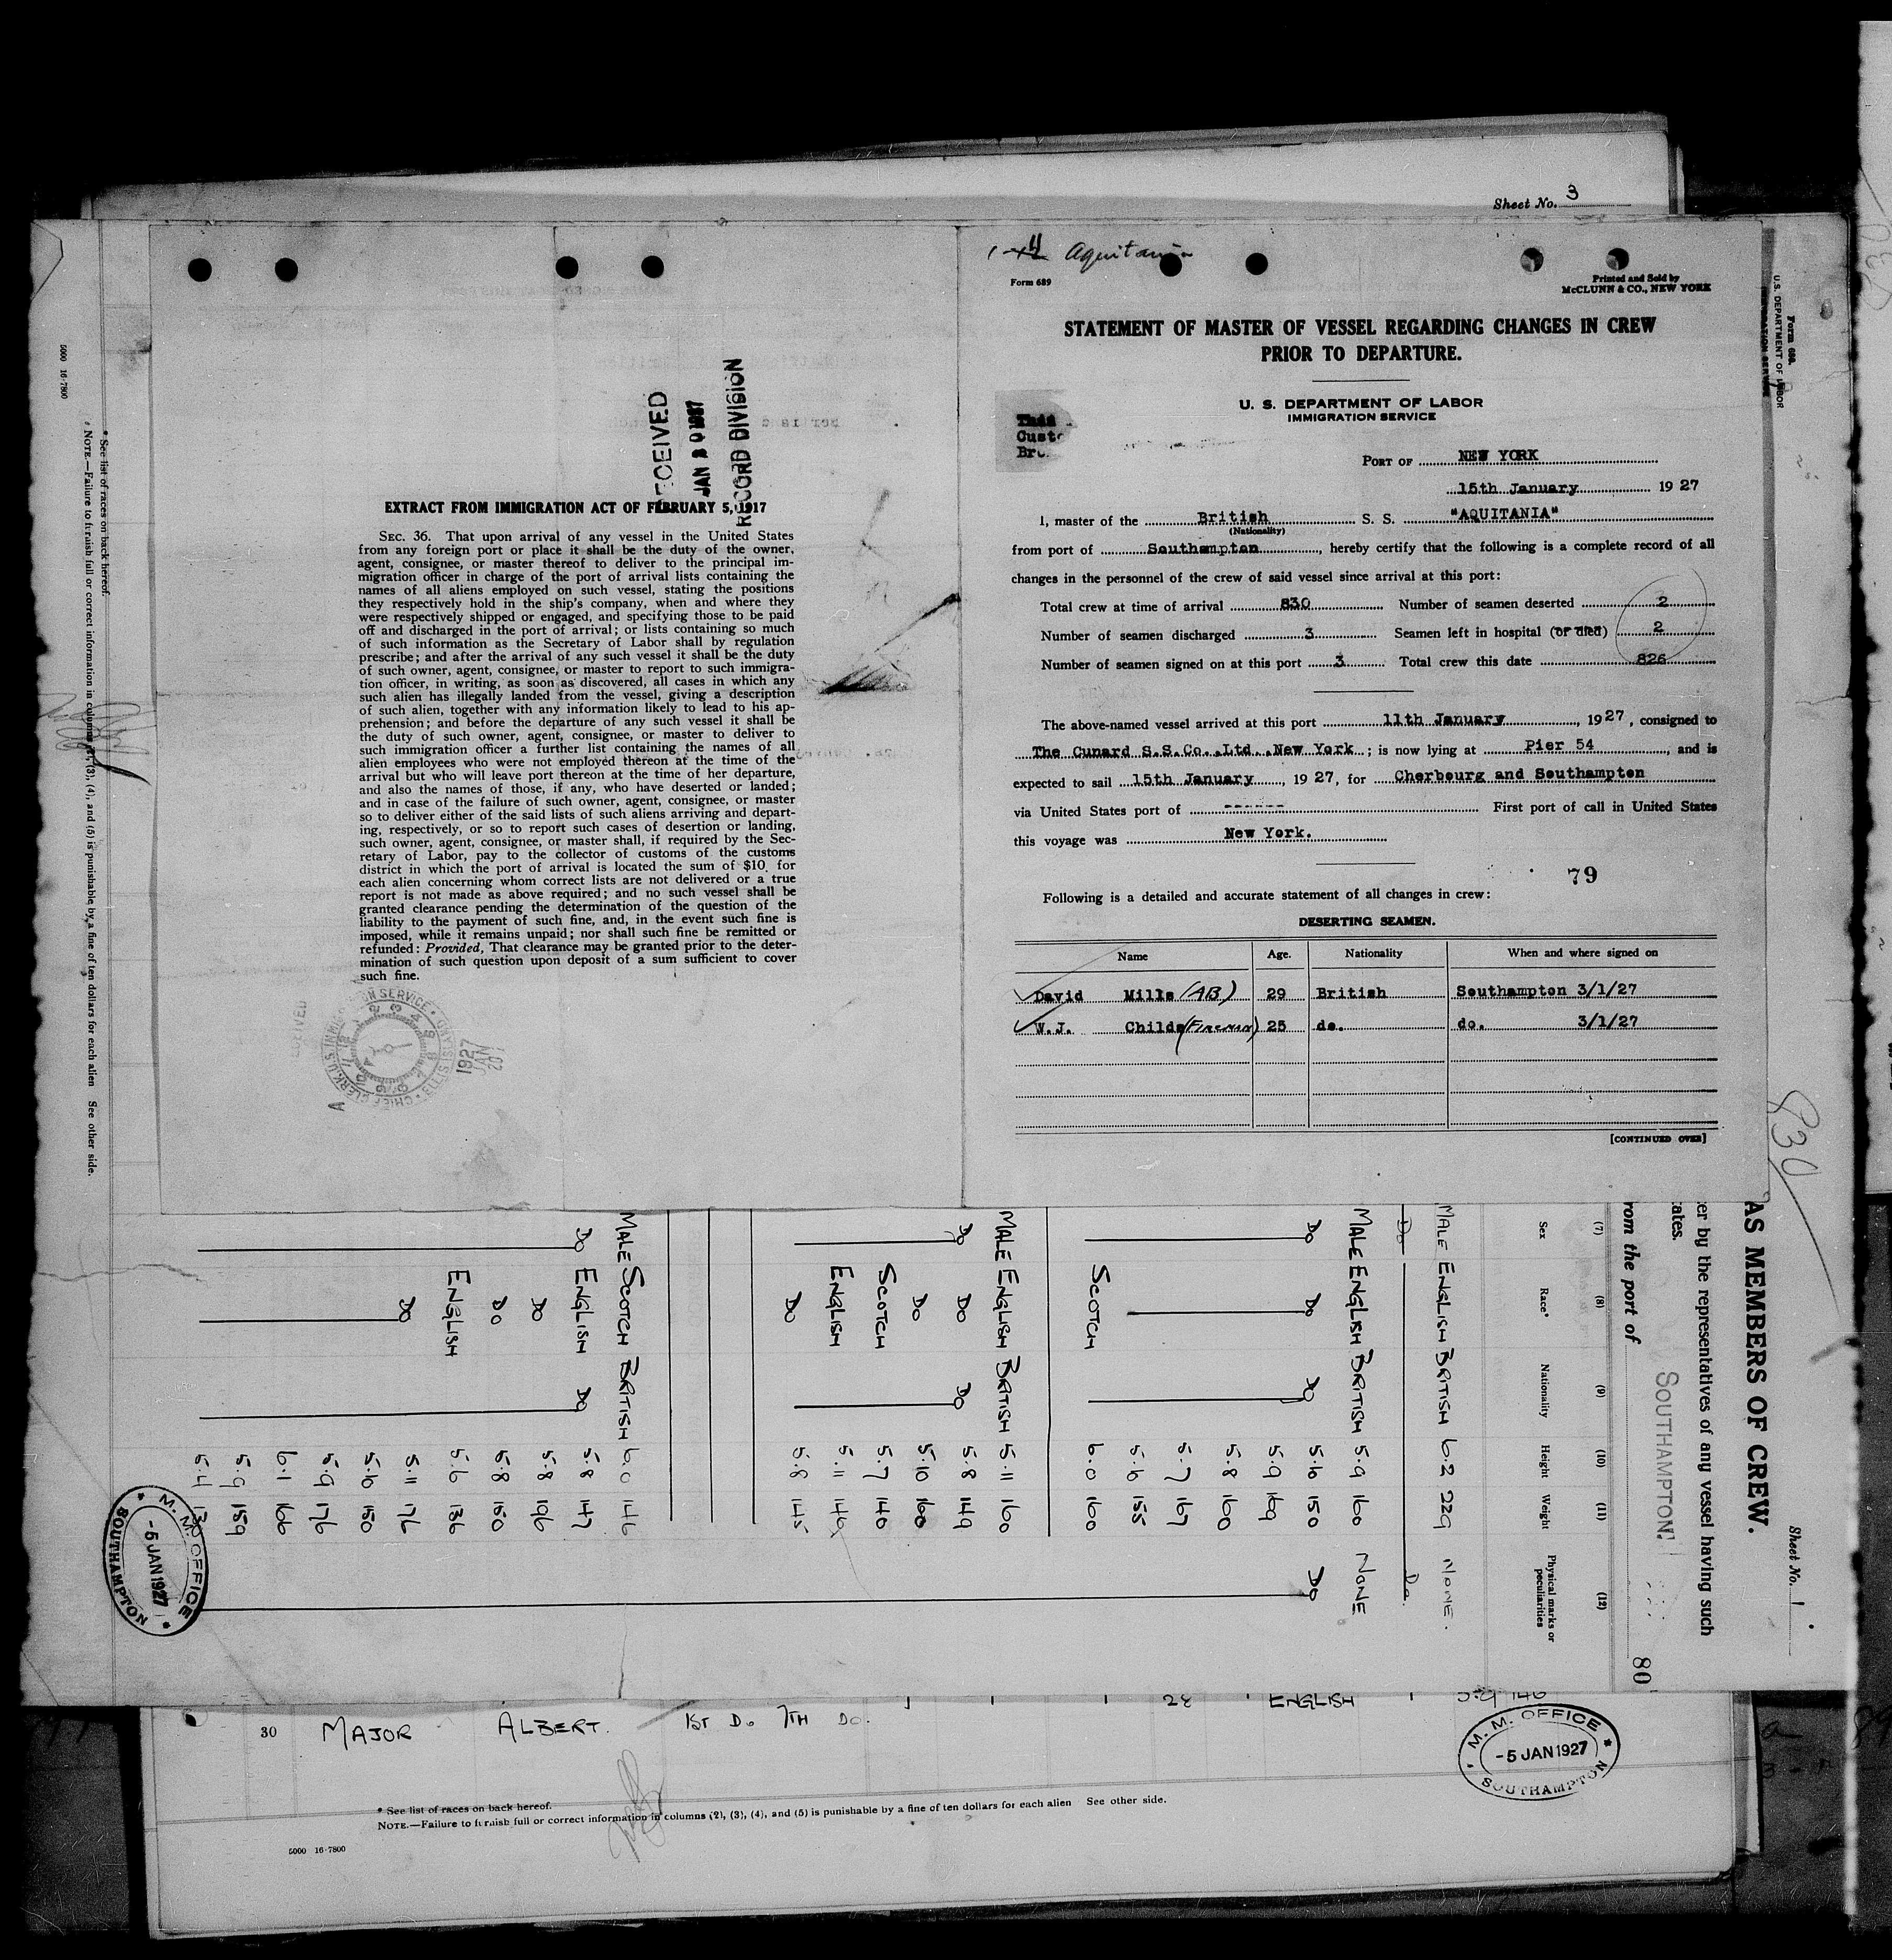 Sheet No. 3
1-11 Aquitania
Form 689
Printed and Sold by
McCLUNN & CO., NEW YORK
STATEMENT OF MASTER OF VESSEL REGARDING CHANGES IN CREW
PRIOR TO DEPARTURE.
U. S. DEPARTMENT OF LABOR
IMMIGRATION SERVICE
PORT OF NEW YORK
15th January 1927
I, master of the British S. S. "AQUITANIA"
(Nationality)
from port of Southampton, hereby certify that the following is a complete record of all
changes in the personnel of the crew of said vessel since arrival at this port:
Total crew at time of arrival 830 Number of seamen deserted 2
Number of seamen discharged 3 Seamen left in hospital (or died) 2
Number of seamen signed on at this port 3 Total crew this date 826
The above-named vessel arrived at this port 11th January, 1927, consigned to
The Cunard S.S.Co..Ltd..New York; is now lying at Pier 54, and is
expected to sail 15th January, 1927, for Cherbourg and Southampton
via United States port of ------ First port of call in United States
this voyage was New York.
79
Following is a detailed and accurate statement of all changes in crew:
DESERTING SEAMEN.
Name Age. Nationality When and where signed on
David Mills (AB) 29 British Southampton 3/1/27
W.J. Childs (FIREMAN) 25 do. do. 3/1/27
[CONTINUED OVER]
RECORD DIVISION
EXTRACT FROM IMMIGRATION ACT OF FEBRUARY 5, 1917
SEC. 36. That upon arrival of any vessel in the United States
from any foreign port or place it shall be the duty of the owner,
agent, consignee, or master thereof to deliver to the principal im-
migration officer in charge of the port of arrival lists containing the
names of all aliens employed on such vessel, stating the positions
they respectively hold in the ship's company, when and where they
were respectively shipped or engaged, and specifying those to be paid
off and discharged in the port of arrival; or lists containing so much
of such information as the Secretary of Labor shall by regulation
prescribe; and after the arrival of any such vessel it shall be the duty
of such owner, agent, consignee, or master to report to such immigra-
tion officer, in writing, as soon as discovered, all cases in which any
such alien has illegally landed from the vessel, giving a description
of such alien, together with any information likely to lead to his ap-
prehension; and before the departure of any such vessel it shall be
the duty of such owner, agent, consignee, or master to deliver to
such immigration officer a further list containing the names of all
alien employees who were not employed thereon at the time of the
arrival but who will leave port thereon at the time of her departure,
and also the names of those, if any, who have deserted or landed;
and in case of the failure of such owner, agent, consignee, or master
so to deliver either of the said lists of such aliens arriving and depart-
ing, respectively, or so to report such cases of desertion or landing,
such owner, agent, consignee, or master shall, if required by the Sec-
retary of Labor, pay to the collector of customs of the customs
district in which the port of arrival is located the sum of $10 for
each alien concerning whom correct lists are not delivered or a true
report is not made as above required; and no such vessel shall be
granted clearance pending the determination of the question of the
liability to the payment of such fine, and, in the event such fine is
imposed, while it remains unpaid; nor shall such fine be remitted or
refunded: Provided, That clearance may be granted prior to the deter-
mination of such question upon deposit of a sum sufficient to cover
such fine.
1927
JAN
20
Sheet No. 1
AS MEMBERS OF CREW.
er by the representatives of any vessel having such
ates.
rom the port of SOUTHAMPTON
80
830
Form 689.
U.S. DEPARTMENT OF LABOR
(7) (8) (9) (10) (11) (12)
Sex Race* Nationality Height Weight Physical marks or peculiarities
MALE ENGLISH BRITISH 6.2 229 NONE.
Do Do.
MALE ENGLISH BRITISH 5.9 160 NONE
Do Do Do 5.10 150 Do
5.9 169
5.8 160
5.7 167
5.6 155
SCOTCH 6.0 160
MALE ENGLISH BRITISH 5.11 160
Do Do Do 5.8 149
Do 5.10 160
SCOTCH 5.7 140
ENGLISH 5.11 146
Do 5.8 145
MALE SCOTCH BRITISH 6.0 146
Do ENGLISH Do 5.8 147
Do 5.8 196
Do 5.8 150
ENGLISH 5.6 136
Do 5.11 176
5.10 150
5.9 176
6.1 166
5.9 159
5.4 130
M. M. OFFICE
-5 JAN 1927
SOUTHAMPTON
* See list of races on back hereof.
NOTE.—Failure to furnish full or correct information in columns (2), (3), (4), and (5) is punishable by a fine of ten dollars for each alien See other side.
5000 16-7800
28 ENGLISH 5.9 146
30 MAJOR ALBERT. 1ST Do 7TH Do.
M. M. OFFICE
-5 JAN 1927
SOUTHAMPTON
* See list of races on back hereof.
NOTE.—Failure to furnish full or correct information in columns (2), (3), (4), and (5) is punishable by a fine of ten dollars for each alien See other side.
5000 16-7800